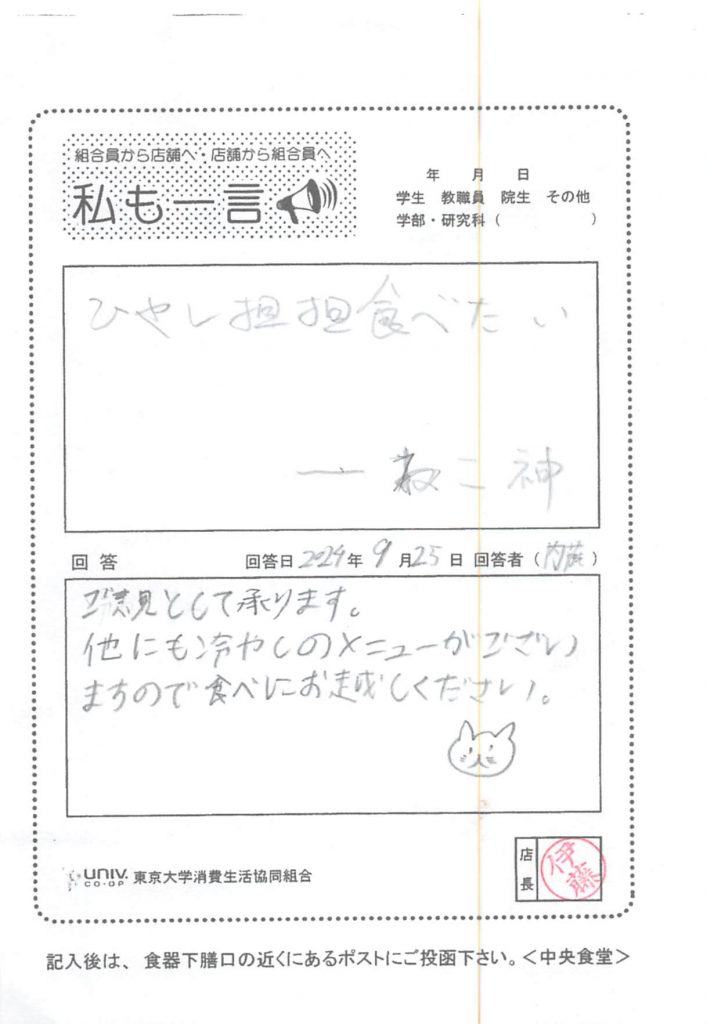 組合員から店舗へ・店舗から組合員へ
私も一言
年 月 日
学生 教職員 院生 その他
学部・研究科（ ）
ひやし担担食べたい
── ねこ神
回答 回答日 2024年 9月25日 回答者（内藤）
ご意見として承ります。
他にも冷やしのメニューがござい
ますので食べにお越しください。
UNIV. CO-OP 東京大学消費生活協同組合
店長 伊藤
記入後は、食器下膳口の近くにあるポストにご投函下さい。＜中央食堂＞